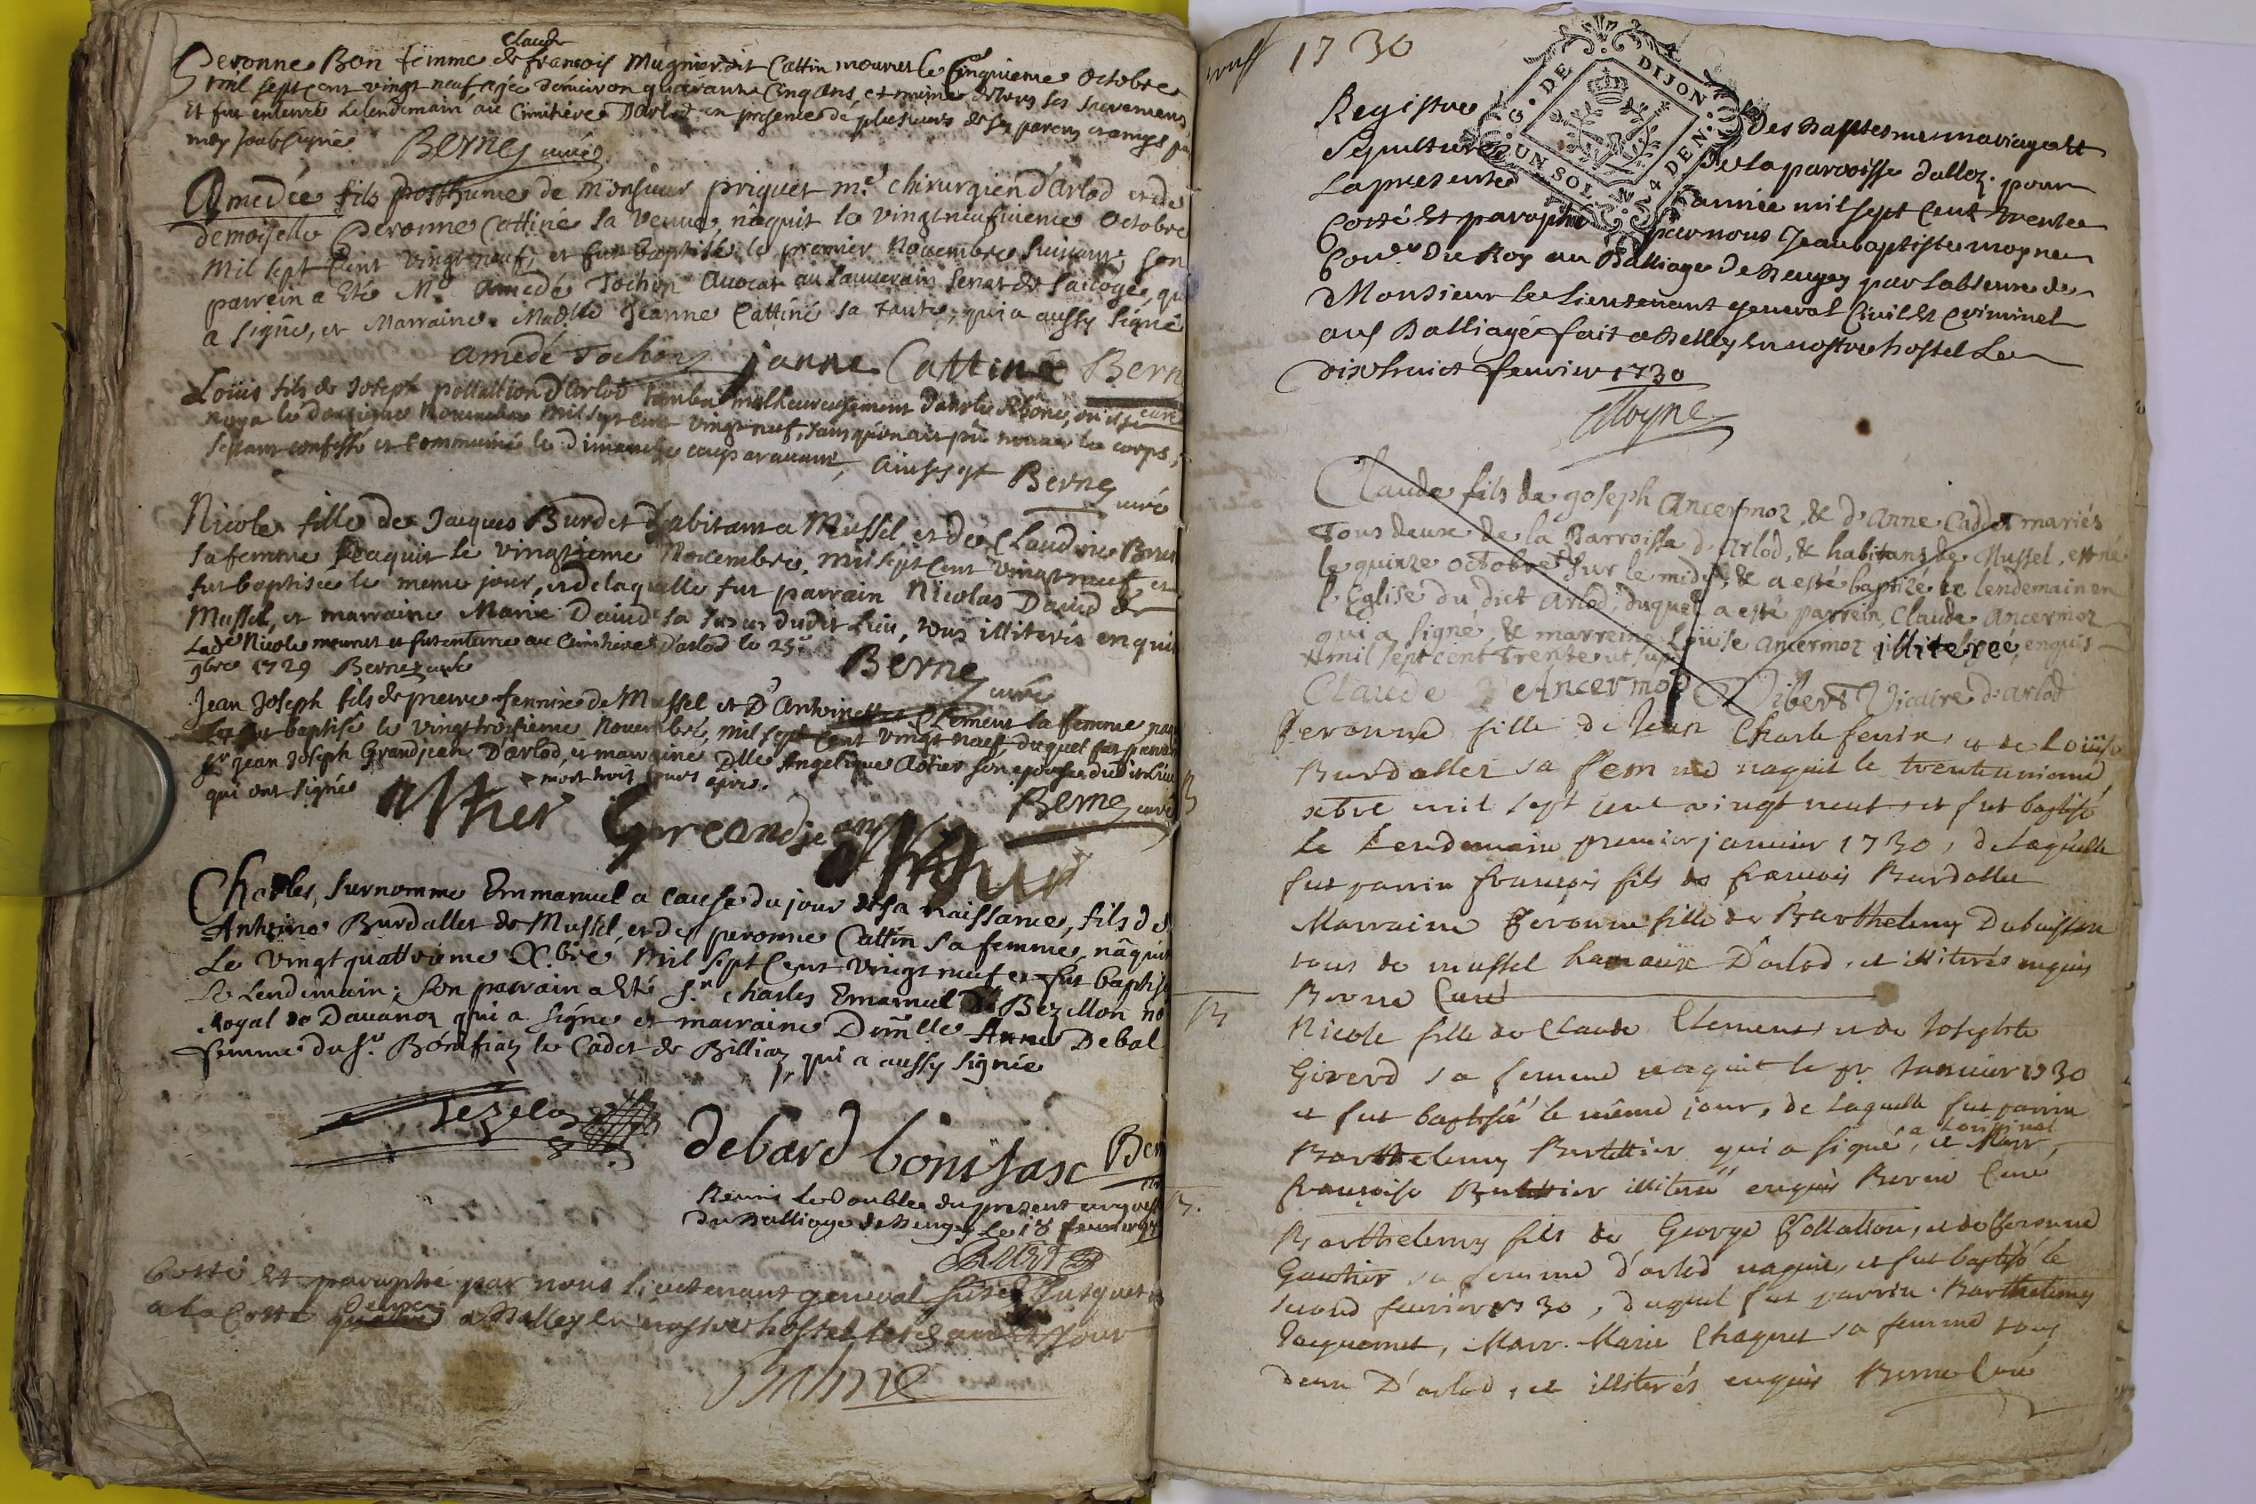 claude
Peronne Bon femme de françois Mugnier dit Cattin mourut le Cinquieme octobre
mil sept cent vingt neuf agée denviron quarante cinq ans, et munie de tous ses sacremens
et fut enterré le lendemain au Cimitiere D'arlod en presence de plusieurs de ses parens et amys
moy soubsigné Bernez curé
Amedée fils posthume de Monsieur priquet me chirurgien d'Arlod et de
demoiselle Peronne Cattiné sa veuve, nâquit le vingt neufvieme octobre
mil sept Cent vingt neuf, et fut baptisé le premier Novembre suivant, son
parrein a Eté Mr Amedé Tochon Avocat au Souverain Senat de Savoye, qui
a signé, et Marraine Madlle Jeanne Cattiné sa tante, qui a aussy signé
amedé Tochon janne Cattine Bern
curé
Loüis fils de Joseph pollattion D'arlod tomba malheureusement dans le Rhône, ou il se
noya le douzieme Novembre mil sept cent vingt neuf, sans qu'on ait pû trouver le corps,
s'estant confessé et communié le dimanche auparavant, Ainsy est Bernez curé
Nicole fille de Jacques Burdet habitant a Mussel, et de Claudine Brun
sa femme naquit le vingtieme Novembre, mil sept Cent vingt neuf et
fut baptisée le meme jour, et de laquelle fut parrain Nicolas David de
Mussel, et marraine Marie David sa soeur dudit lieu, tous illiterés enquis
Lade Nicole mourut et fut enterré au Cimitiere D'arlod le 25e
9bre 1729 Bernez curé Bernez curé
Jean Joseph fils de pierre fennix de Mussel et D'Antoinette Clement sa femme
fut baptisé le vingt troisieme Novembre, mil sept Cent vingt neuf duquel fut parrain
Sr jean Joseph Grandjean D'arlod, et marraine Dlle Angelique Astier son epouse dudit lieu
qui ont signé mort huit jours apres. Bernez curé
asther Greandjean
Charles, surnommé Emmanuel a cause du jour de sa naissance, fils de
Antoine Burdallet de Mussel et de peronne Cattin sa femme, nâquit
Le vingt quattrieme Xbre mil sept Cent vingt neuf et fut baptisé
Le Lendemain; son parrain a Eté Sr charles Emanuel de Bezellon no
Royal de Davanoz qui a signé et marraine Dmlle Anne Debal
femme du Sr Bonifiaz le Cadet de Billiaz qui a aussy signée
debard bonifase Ber
Remis le double du present au greffe
du Balliage de Beugey le 18 fevrier 17
Cotté Et paraphé par nous lieutenant general
a la Cotte a Belley en nostre hostel lesd an et jour
1730
G. DE DIJON
UN SOL 4 DEN.
Registre Des Baptesmes mariages et
Sepultures De la paroisse d'allod. pour
La presente année mil sept Cent trente
Cotté Et paraphé par nous Jean baptiste moyne
Coner Du Roy au Balliage de Beugey par labsence de
Monsieur le Lieutenant general Civil Et Criminel
aud Balliage fait a Belley En nostre hostel Le
dixhuict feuvrier 1730
Moyne
Claude fils de joseph Ancermoz, & d'anne Caddot mariés
Tous deux de la Parroisse d'Arlod, & habitans de Mussel, est né
le quinze octobre sur le midy, & a esté baptizé le lendemain en
l'Eglise du dict Arlod, duquel a esté parrein Claude Ancermoz
qui a signé, & marreine Loüise Ancermoz illiterée, enquis
mil sept cent Trente ut supra
Claude Ancermoz Vibert Vicaire d'arlod
Peronne fille de Jean Charle fenix, et de Loüise
Burdallet sa femme naquit le trenteunieme
xbre mil sept cent vingt neuf, et fut baptisé
le Lendemain premier janvier 1730, de laquelle
fut parrin françois fils de francois Burdallet
Marraine Peronne fille de Barthelemy Dubuisson
tous de mussel hameaux D'arlod, et illiterés enquis
Berne Curé
B
Nicole fille de Claude Clement et de Josephte
Girerd sa femme naquit le pr Janvier 1730
et fut baptisée le même jour, de laquelle fut parrin
Barthelemy Berthier qui a signé a Loriginal, et Marr.
francoise Berthier illiterée enquis Berne Curé
B.
Barthelemy fils de George Pollattion, et de Peronne
Gautier sa femme d'arlod naquit, et fut baptisé le
second fevrier 1730, duquel fut parrin Barthelemy
Jacquemet, Marr. Marie Chaquet sa femme tous
deux D'arlod, et illiterés enquis Berne Curé